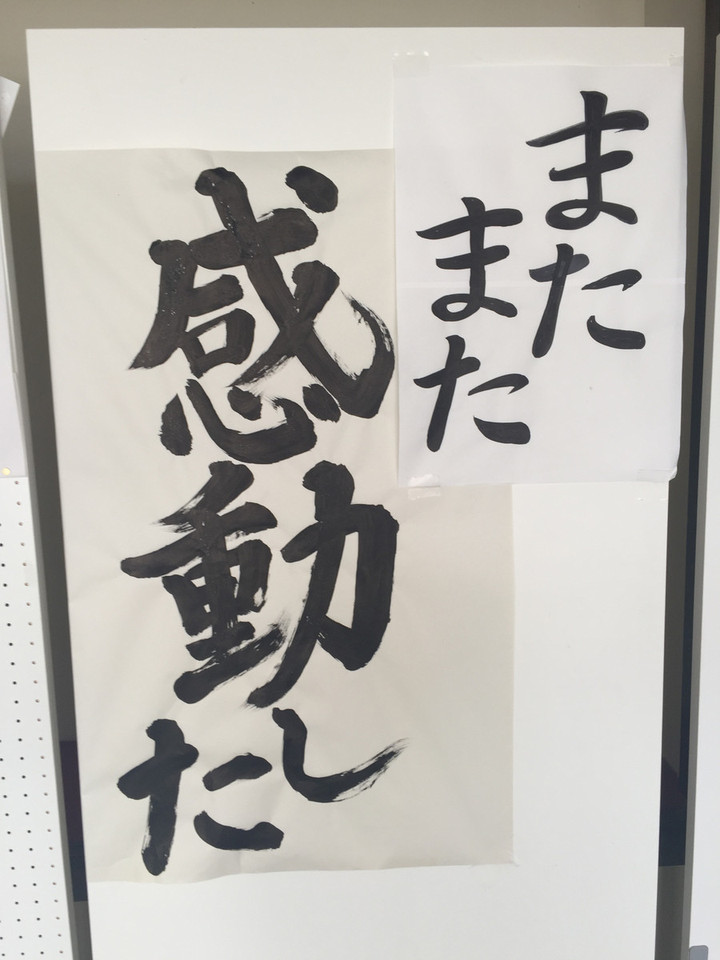 また
また
感動し
た